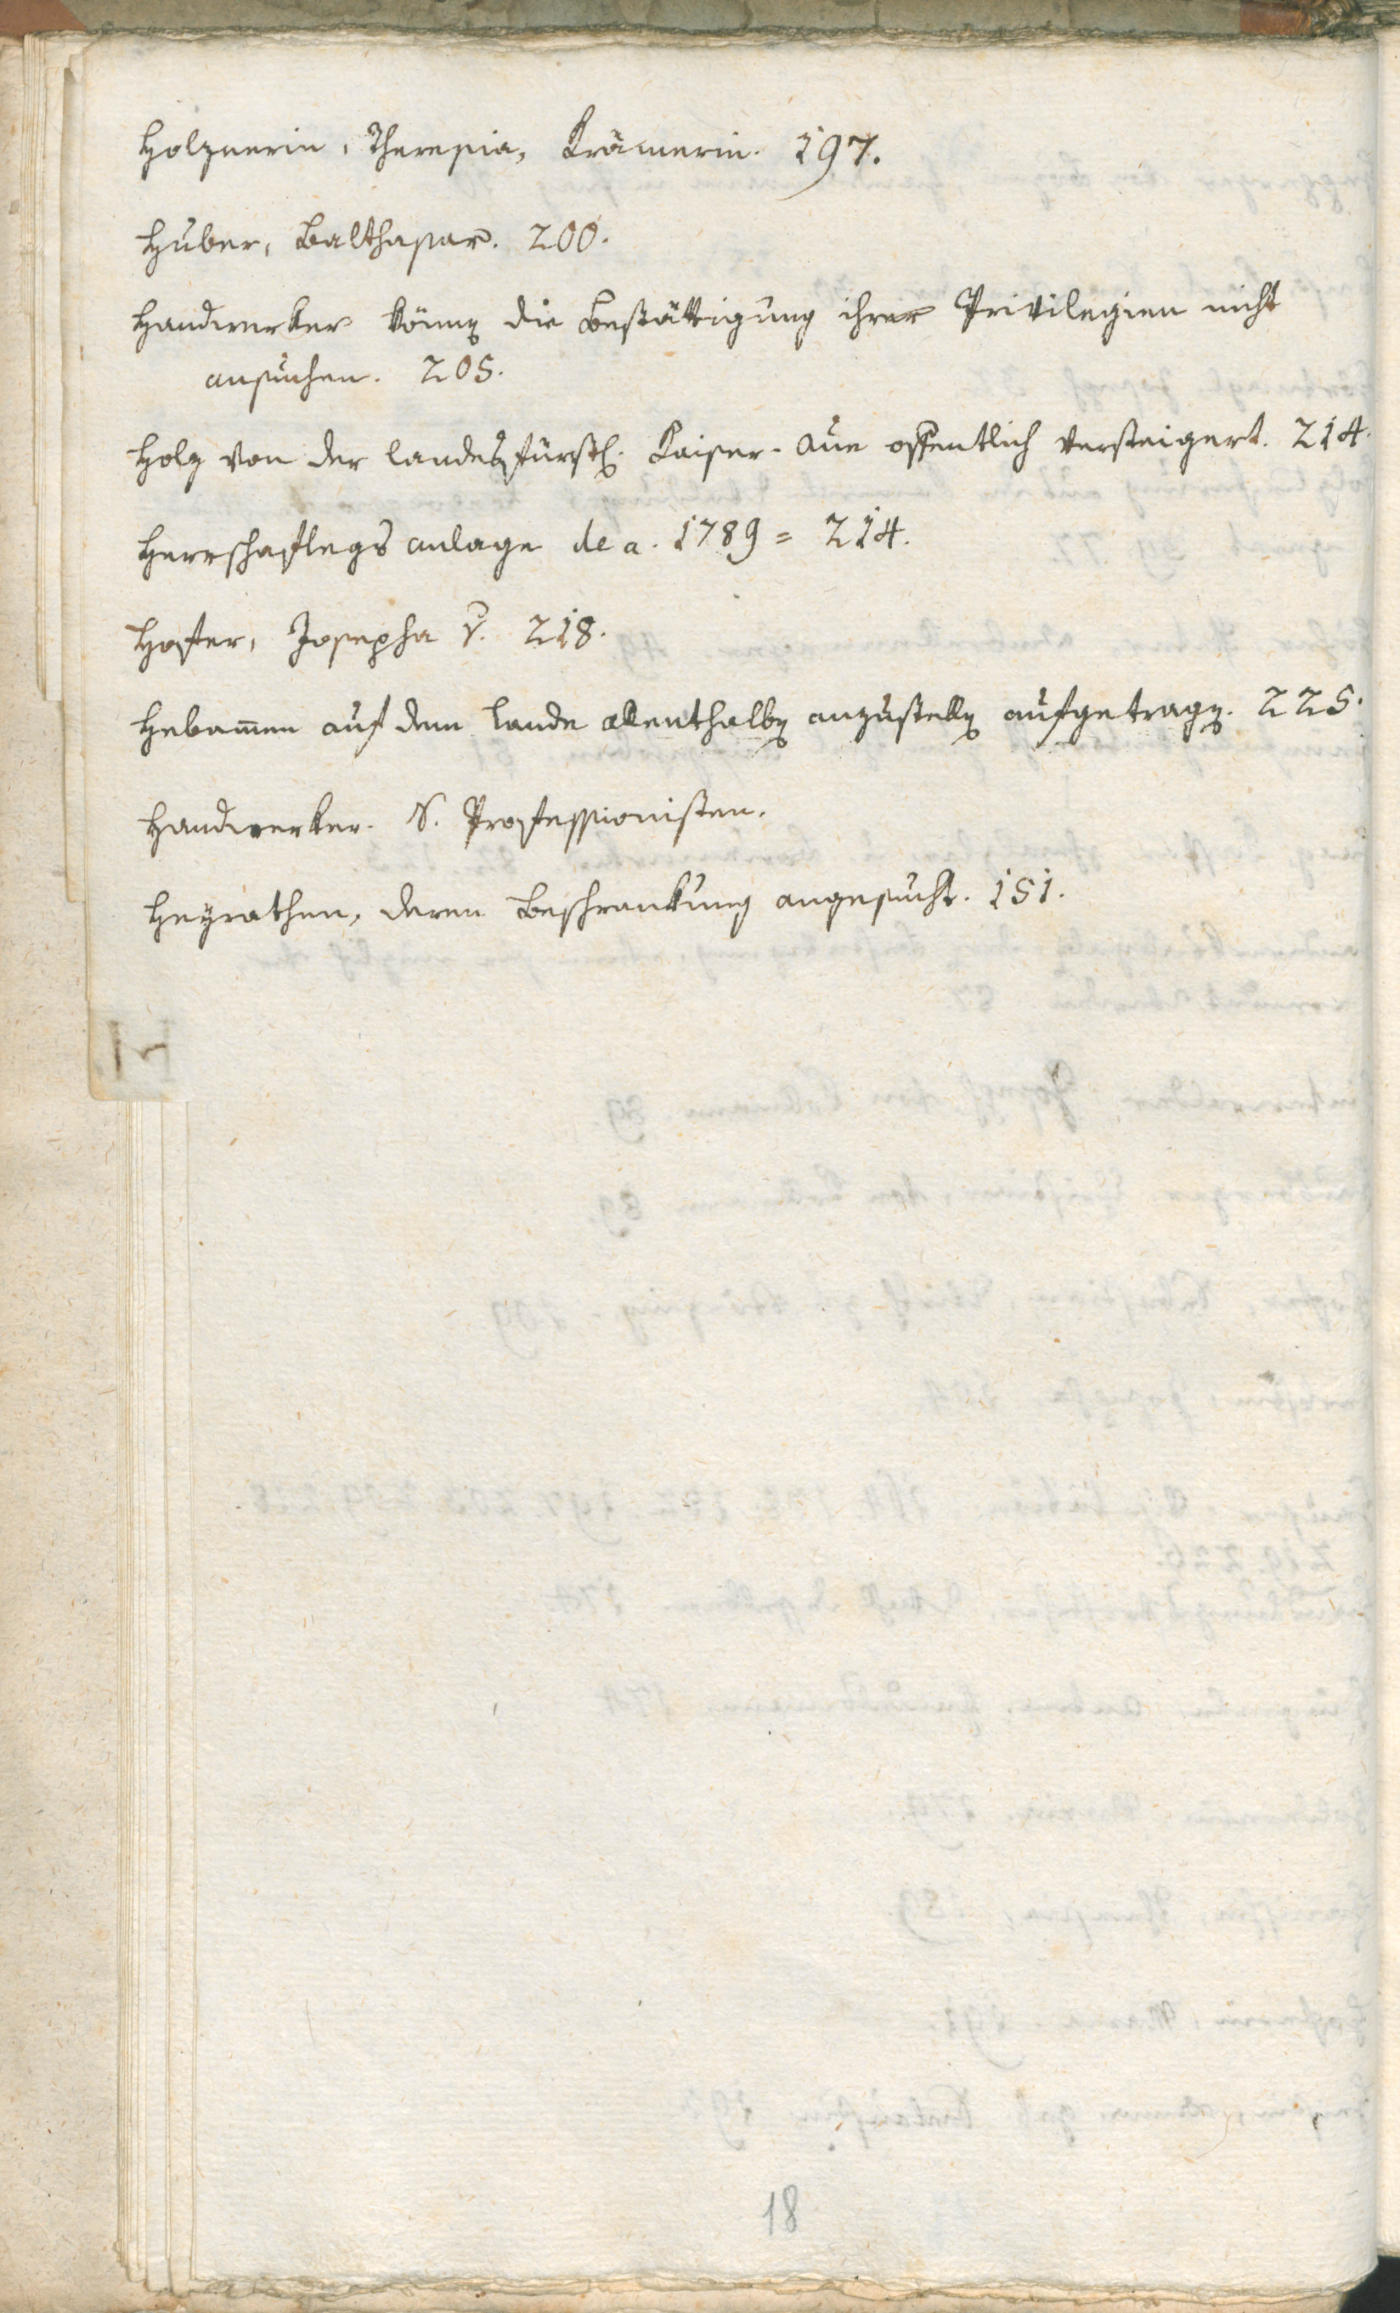 Holznerin, Theresia, Krämerin. 197.
Huber, Balthasar. 200.
Handwerker können die Bestättigung ihrer Privilegien nicht
ansuchen. 205.
Holz von der landesfürstl. Kaiser-Aue offentlich versteigert. 214.
Herrschaftlegs anlage de a. 1789 = 214.
Hofer, Josepha v. 218.
Hebam̄en auf dem Lande allenthalben anzustellen aufgetragen. 225.
Handwerker. S. Professionisten.
Heyrathen, deren Beschrankung angesucht. 151.
H
18